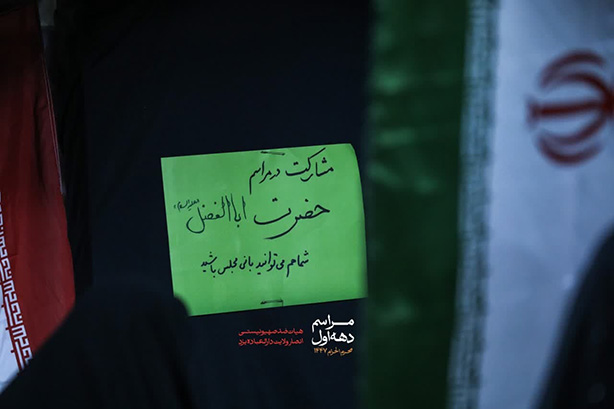 مشارکت در مراسم
حضرت اباالفضل علیه السلام
شما هم می توانید بانی مجلس باشید
مراسم
دهه اول
محرم الحرام ۱۴۴۷
هیات ضد صهیونیستی
انصار ولایت دارالعباده یزد